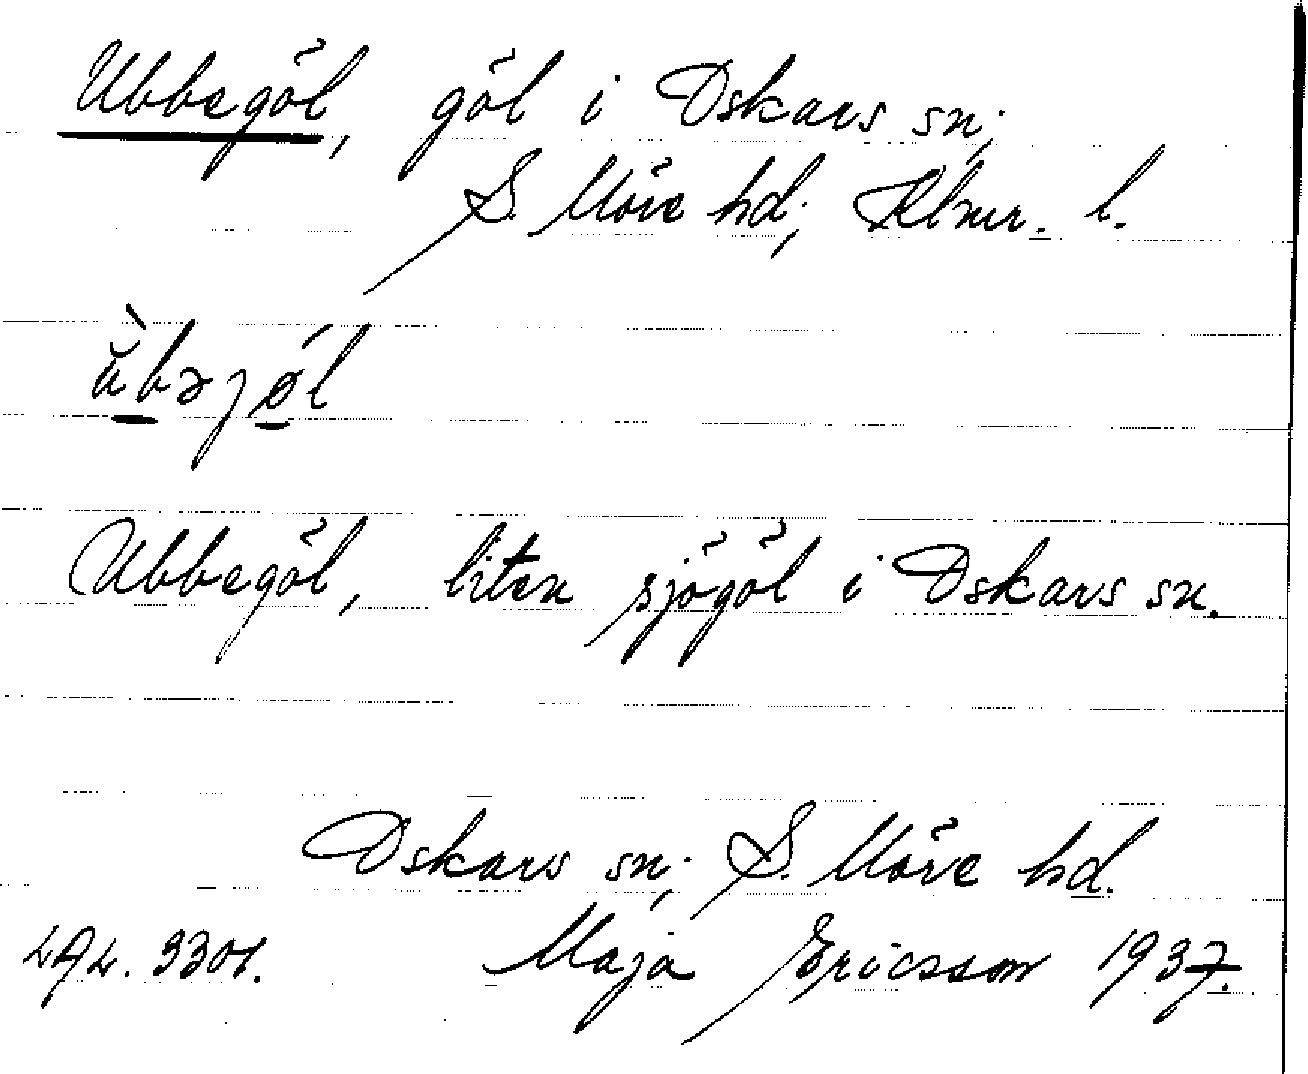 Ubbegöl, göl i Oskars sn;
S. Möre hd; Klmr. l.
ù̆bəjǿl
Ubbegöl, liten sjögöl i Oskars sn.
Oskars sn; S. Möre hd.
Maja Ericsson 1937.